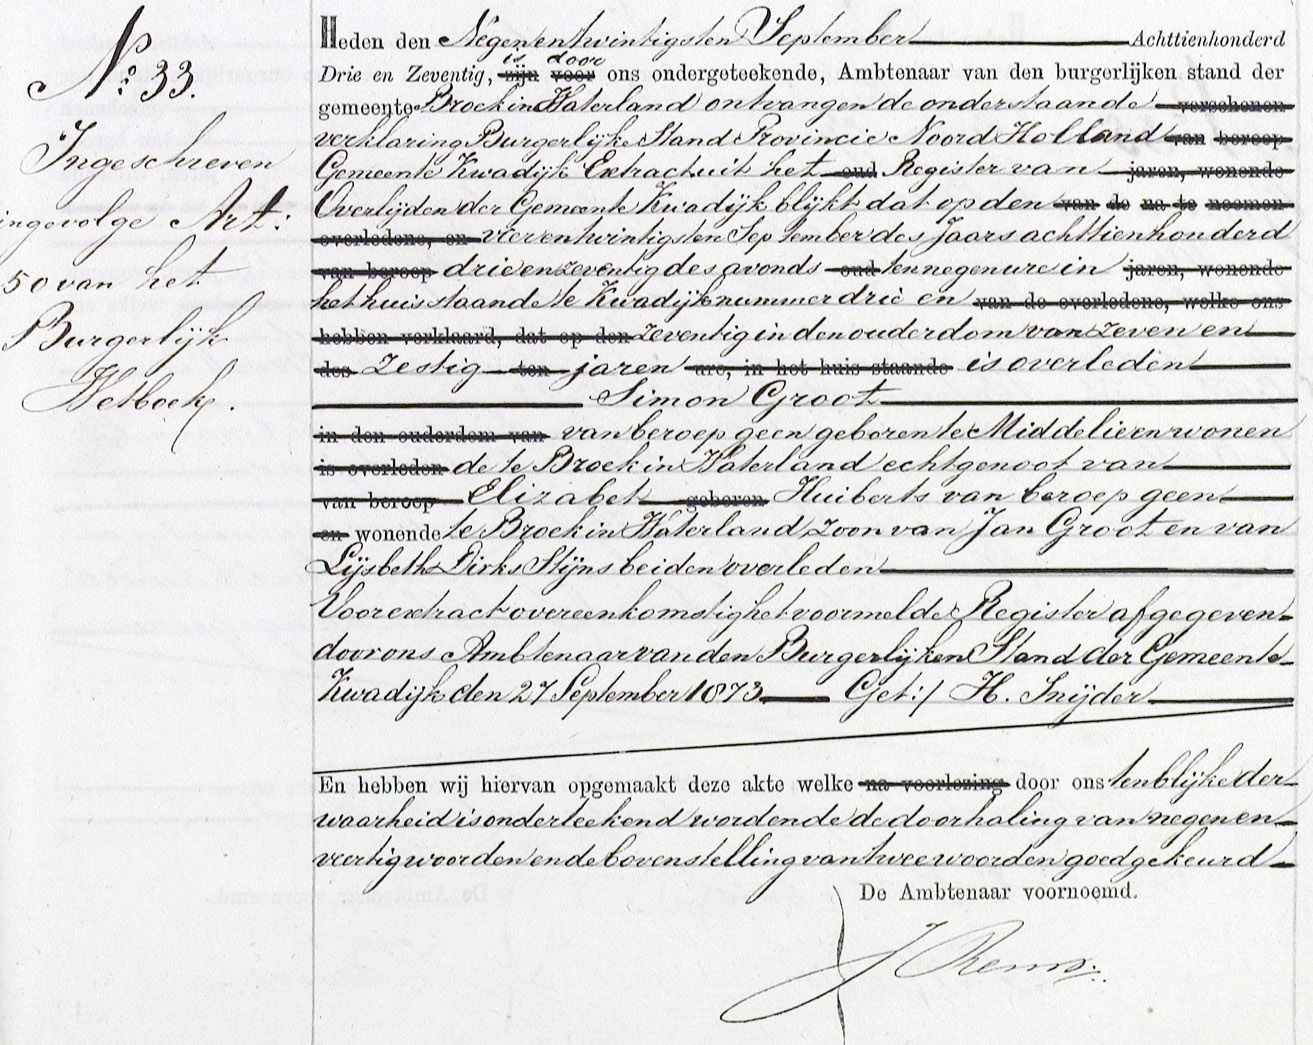 No. 33.
Ingeschreven
ingevolge Art:
50 van het
Burgerlijk
Wetboek.
Heden den Negenentwintigsten September Achttienhonderd
is door
Drie en Zeventig, zijn voor ons ondergeteekende, Ambtenaar van den burgerlijken stand der
gemeente Broek in Waterland ontvangen de onderstaande verschenen
verklaring Burgerlijke Stand Provincie Noord Holland van beroep
Gemeente Kwadijk Extract uit het oud Register van jaren, wonende
Overlijden der Gemeente Kwadijk blijkt dat op den van de na te noemen
overledene, en vierentwintigsten September des Jaars achttienhonderd
van beroep drieenzeventig des avonds oud ten negen ure in jaren, wonende
het huis staande te Kwadijk nummer drie en van de overledene, welke ons
hebben verklaard, dat op den zeventig in den ouderdom van zeven en
des Zestig ten jaren ure, in het huis staande is overleden
Simon Groot
in den ouderdom van van beroep geen geboren te Middelie en wonen
is overleden de te Broek in Waterland echtgenoot van
van beroep Elizabet geboren Huiberts van beroep geen
en wonende te Broek in Waterland, zoon van Jan Groot en van
Lijsbeth Dirks Stijns beiden overleden
Voor extract overeenkomstig het voormelde Register afgegeven
door ons Ambtenaar van den Burgerlijken Stand der Gemeente
Kwadijk den 27 September 1873 Get:/ H. Snijder
En hebben wij hiervan opgemaakt deze akte welke na voorlezing door ons ten blijke der
waarheid is onderteekend wordende de doorhaling van negen en
veertig woorden en de bovenstelling van twee woorden goedgekeurd
De Ambtenaar voornoemd.